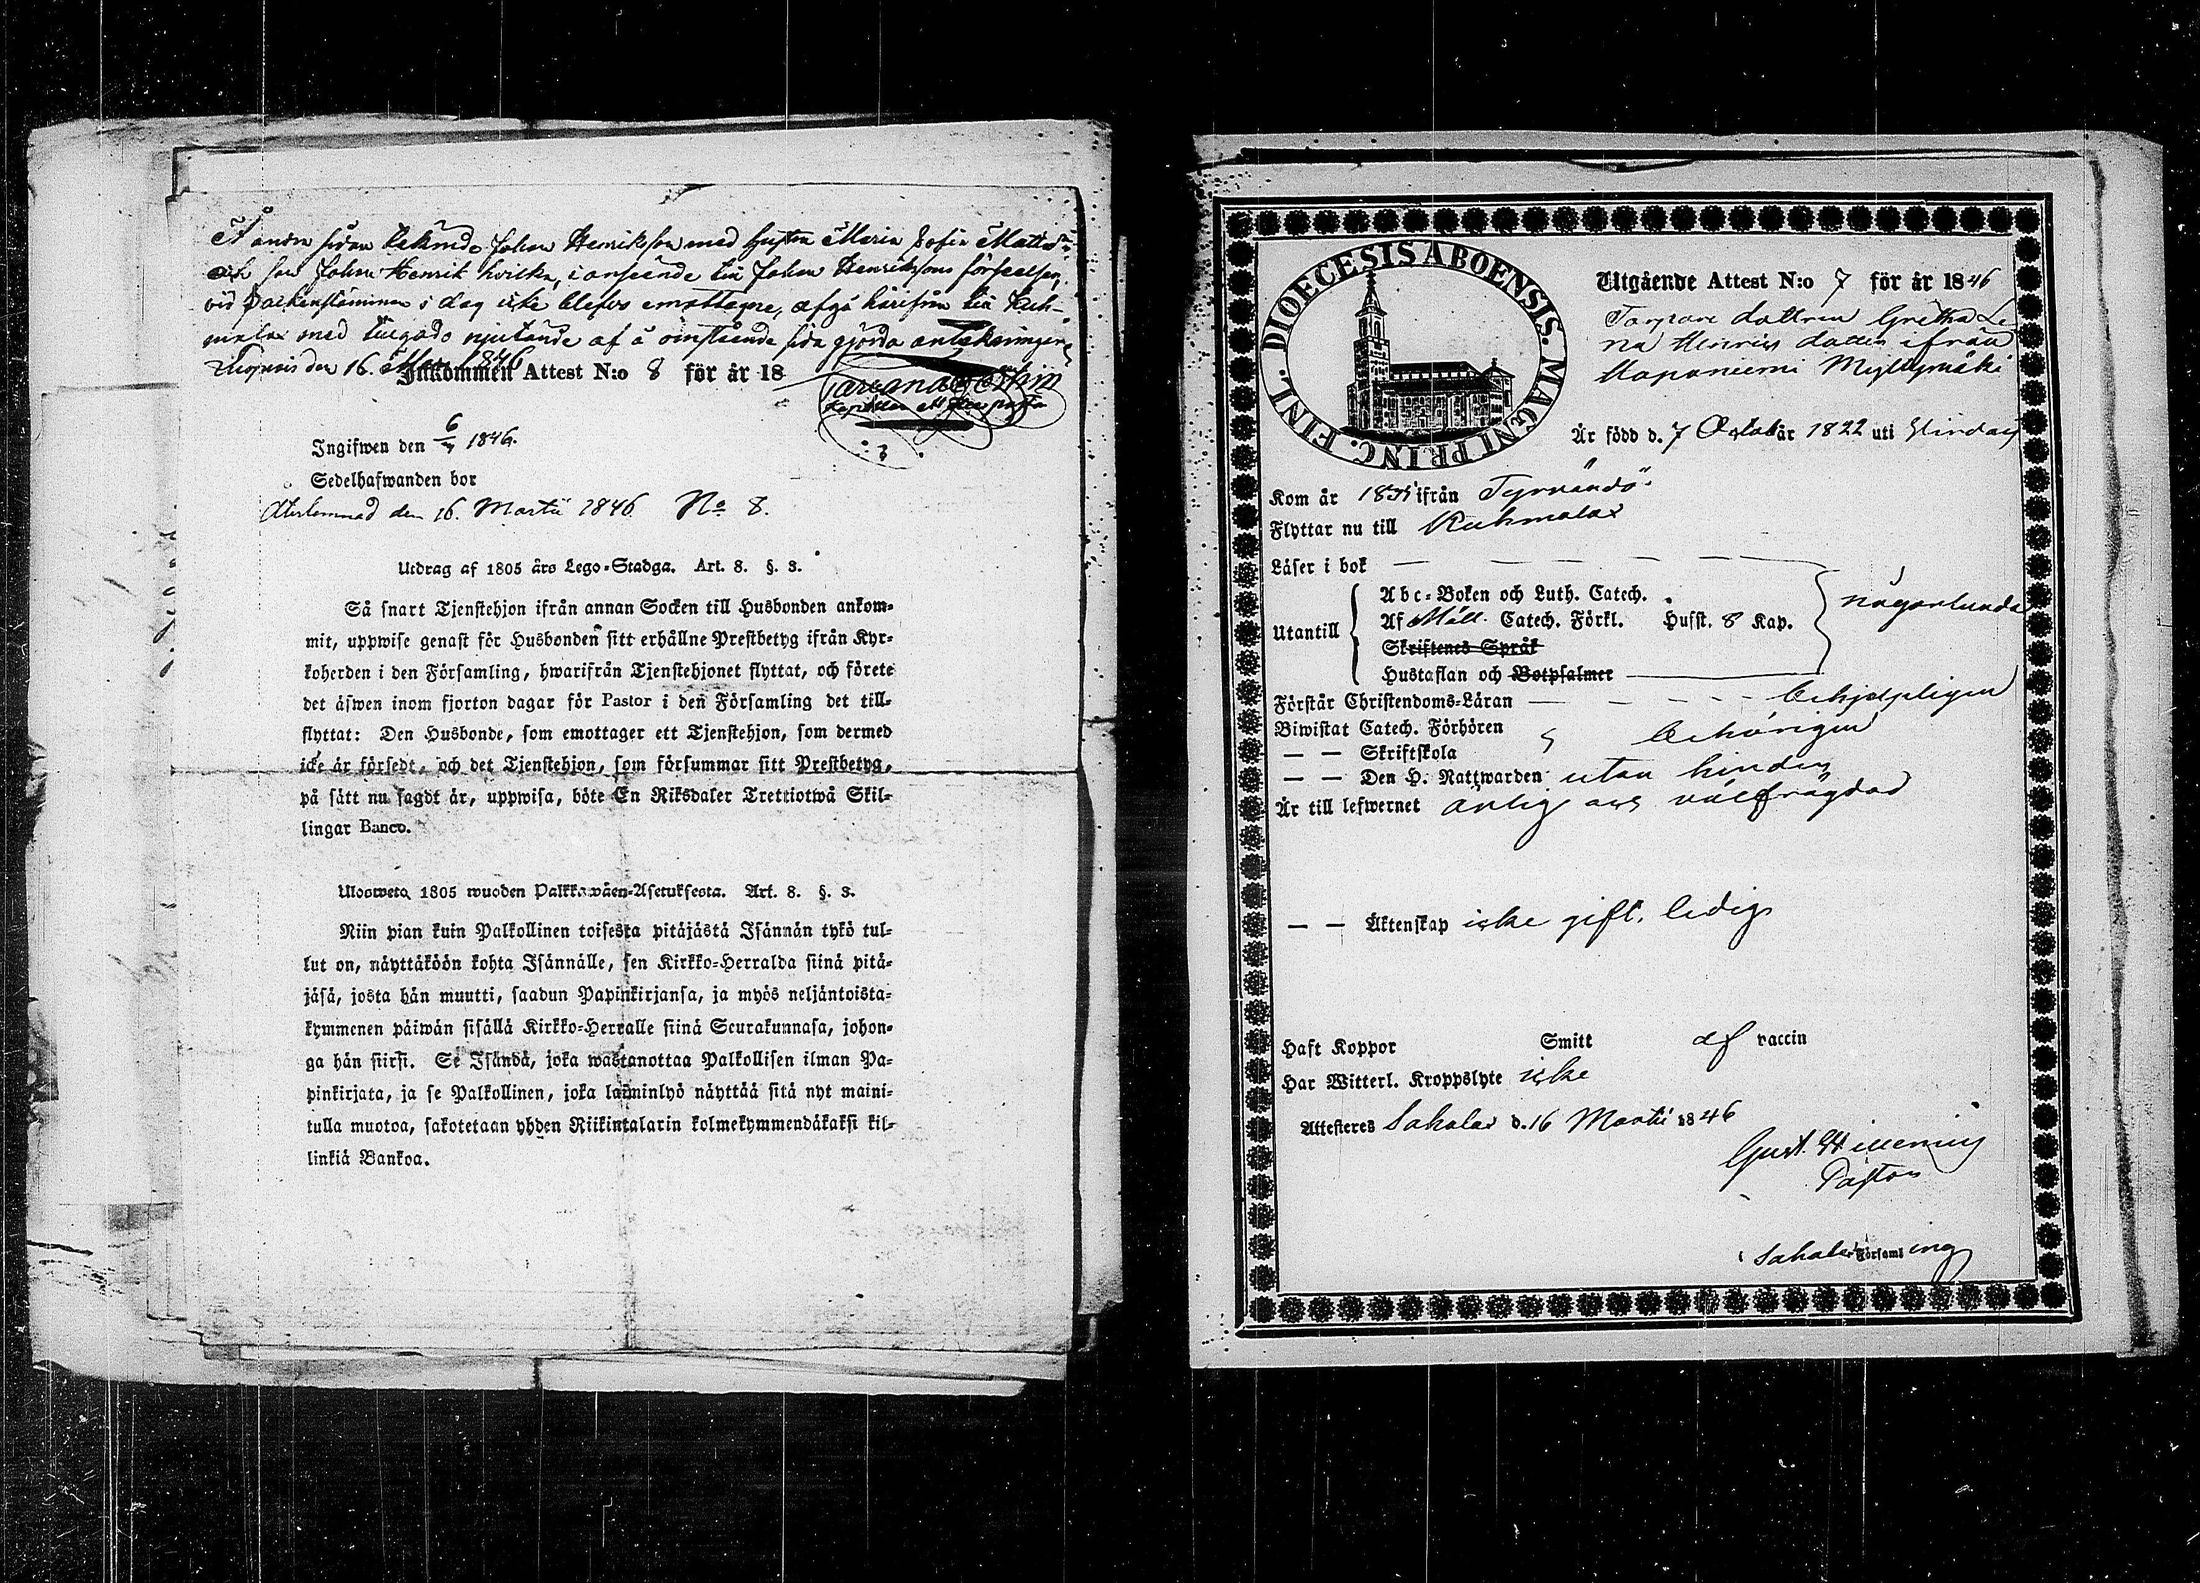 Å andra sidan kände Johan Henriksson med hustru Maria Sofia Matts-
och son Johan Henrik hvilka, i anseende till Johan Henrikssons förseelser,
vid Sockenstämman i dag icke blefvo emottagne, afgå härifrån till Kuh-
malax med tillgodo njutande af å omstående sida gjorda anteckningar
den 16. Mars 1846
Inkommen Attest N:o 8 för år 18
Ingifwen den 6/4 1846.
Sedelhafwanden bor
Återlemnad den 16. Martii 1846. No 8.
Utdrag af 1805 års Lego-Stadga. Art. 8. §. 3.
Så snart Tjenstehjon ifrån annan Socken till Husbonden ankom-
mit, uppwise genast för Husbonden sitt erhållne Prestbetyg ifrån Kyr-
koherden i den Församling, hwarifrån Tjenstehjonet flyttat, och förete
det äfwen inom fjorton dagar för Pastor i den Församling det till-
flyttat: Den Husbonde, som emottager ett Tjenstehjon, som dermed
icke är försedt, och det Tjenstehjon, som försummar sitt Prestbetyg,
på sätt nu sagdt är, uppwisa, böte En Riksdaler Trettiotwå Skil-
lingar Banco.
Ulosweto 1805 wuoden Palkkawäen-Asetuksesta. Art. 8. §. 3.
Niin pian kuin Palkollinen toisesta pitäjästä Isännän tykö tul-
lut on, näyttäköön kohta Isännälle, sen Kirkko-Herralda siinä pitä-
jäsä, josta hän muutti, saadun Papinkirjansa, ja myös neljäntoista-
kymmenen päiwän sisällä Kirkko-Herralle siinä Seurakunnasa, johon-
ga hän siirsi. Se Isändä, joka wastanottaa Palkollisen ilman Pa-
pinkirjata, ja se Palkollinen, joka laiminlyö näyttää sitä nyt maini-
tulla muotoa, sakotetaan yhden Riikintalarin kolmekymmendäkaksi kil-
linkiä Bankoa.
DIOECESIS ABOENSIS. MAGNI PRINC. FINL.
Utgående Attest N:o 7 för år 1846
Torpare dottren Gretha Le
na Henrics dotter ifrån
Haponiemi Myllymäki
Är född d. 7 October 1822 uti
Kom år 1835 ifrån Tyrvändö
Flyttar nu till Kuhmalax
Läser i bok
Utantill
Abc-Boken och Luth. Catech.
Af Möll. Catech. Förkl. Husst. 8 Kap.
någorlunda
Skriftenes Språk
Hustaflan och Botpsalmer
Förstår Christendoms-Läran behjelpligen
Biwistat Catech. Förhören behörigen
— — Skriftskola
— — Den H. Nattwarden utan hinder
Är till lefwernet ärlig och välfrägdad
— — Äktenskap icke gift. ledig
Haft Koppor Smitt af vaccin
Har Witterl. Kroppslyte icke
Attesteres Sahalax d. 16 Martii 1846
Gust.
Pastor
i Sahalax Församling